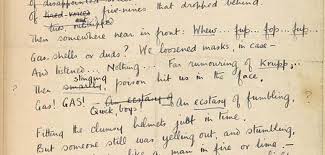 of disappointed shells that dropped behind.
of tired voices five-nines that dropped behind.
Then somewhere near in front: Whew... fup... fop... fup...
Gas shells or duds? We loosened masks, in case —
And listened... Nothing... Far rumouring of Krupp,..
stinging
Then smartly, poison hit us in the face,
Gas! GAS! — An ecstasy of An ecstasy of fumbling,
Quick, boys!
Fitting the clumsy helmets just in time.
But someone still was yelling out, and stumbling,
like a man in fire or lime. —